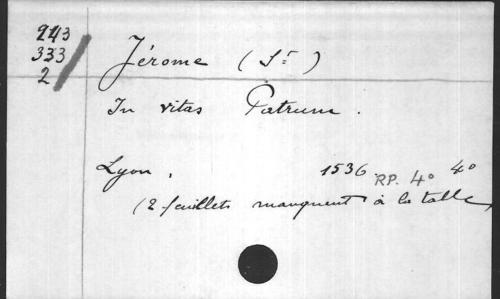 243
333
2
Jérome (St)
In vitas Patrum.
Lyon, 1536. RP. 4° 4°
(2 feuillets manquent à la table)